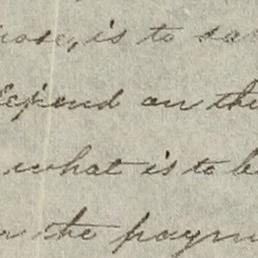 is to sa
depend on the
what is to be
the paym